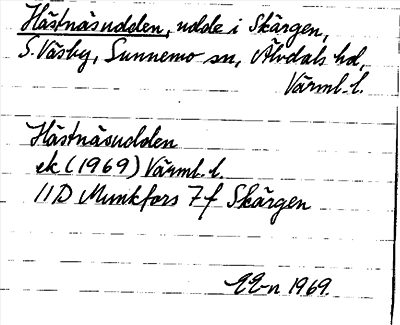 Hästnäsudden, udde i Skärgen,
S. Väsby, Sunnemo sn, Älvdals hd,
Värml. l.
Hästnäsudden
ek (1969) Värml. l.
11D Munkfors 7f Skärgen
EE-n 1969.